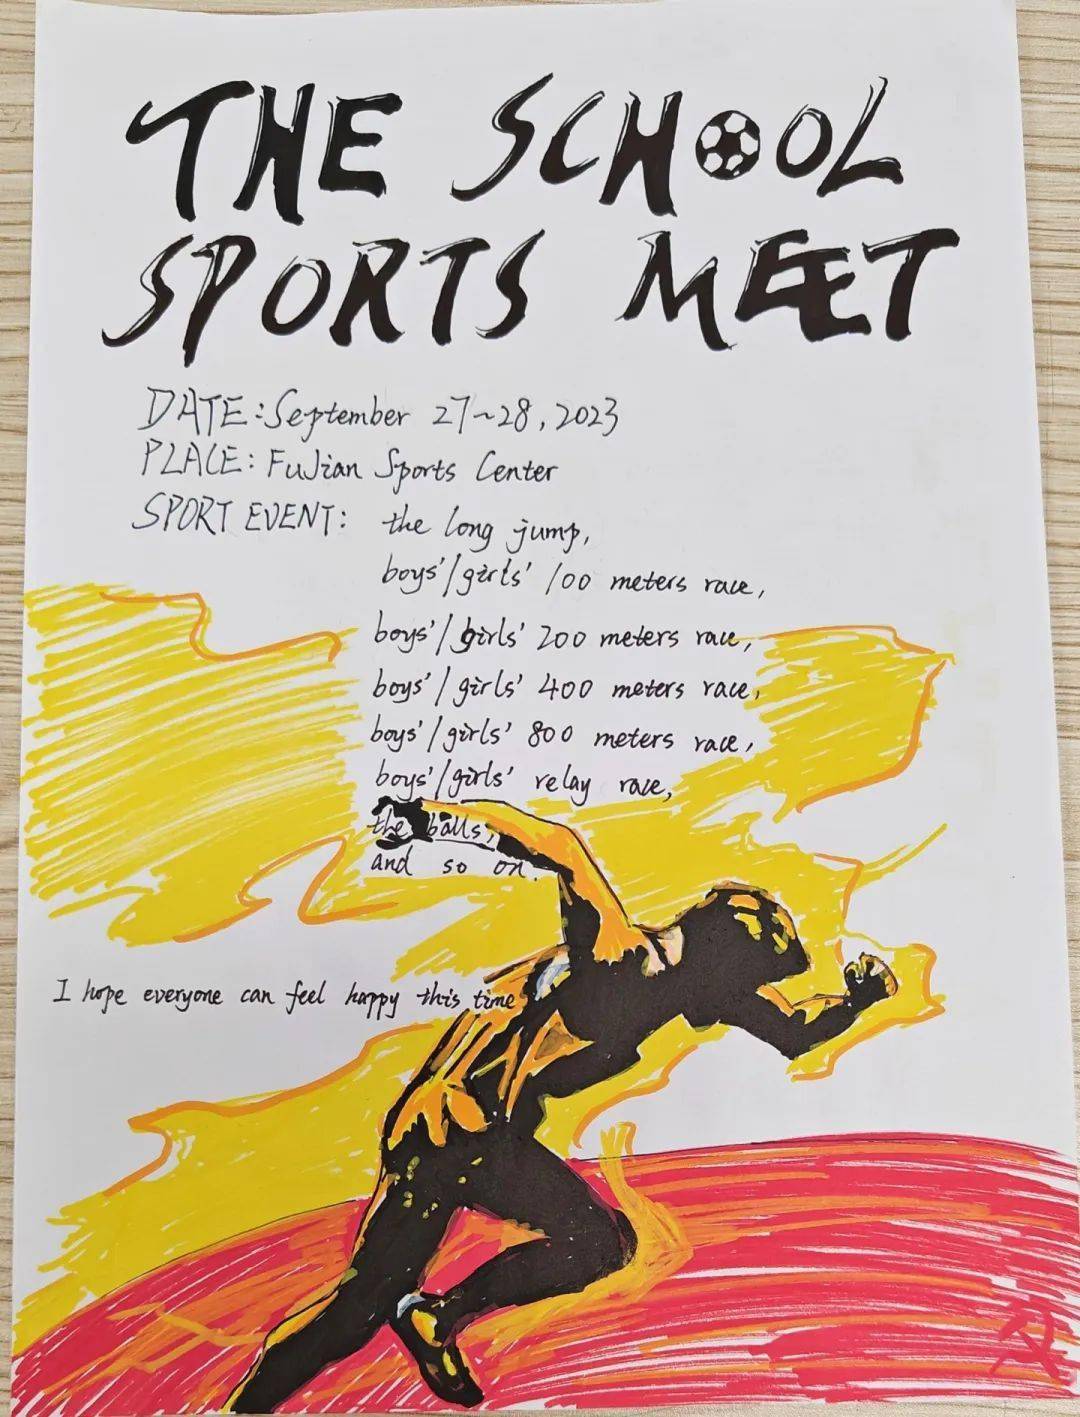 THE SCHOOL
SPORTS MEET
DATE: September 27~28, 2023
PLACE: FuJian Sports Center
SPORT EVENT: the long jump,
boys'/girls' 100 meters race,
boys'/girls' 200 meters race,
boys'/girls' 400 meters race,
boys'/girls' 800 meters race,
boys'/girls' relay race,
the balls,
and so on.
I hope everyone can feel happy this time